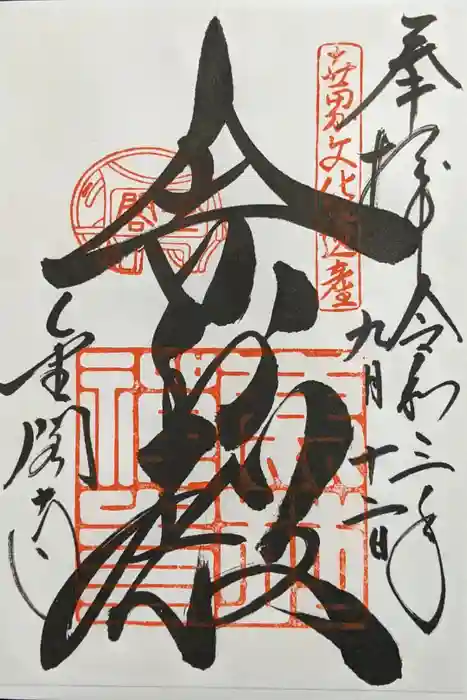 奉拝 令和三年
九月十二日
世界文化遺産
舎利殿
金閣寺